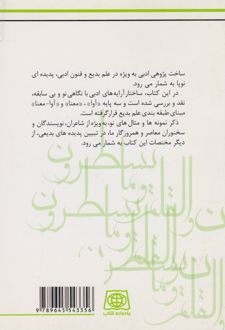 ساخت پژوهی ادبی به ویژه در علم بدیع و فنون ادبی، پدیده ای
نوپا به شمار می رود.
در این کتاب، ساختار آرایه‌های ادبی با نگاهی نو و بی سابقه،
نقد و بررسی شده است و سه پایه «آوا»، «معنا» و «آوا-معنا»
مبنای طبقه بندی علم بدیع قرار گرفته است.
ذکر نمونه ها و مثال های نو، به ویژه از شاعران، نویسندگان و
سخنوران معاصر و همروزگار ما، در تبیین پدیده های بدیعی، از
دیگر مختصات این کتاب به شمار می رود.
ن والقلم و ما یسطرون
9 789645 543356
یادواره کتاب